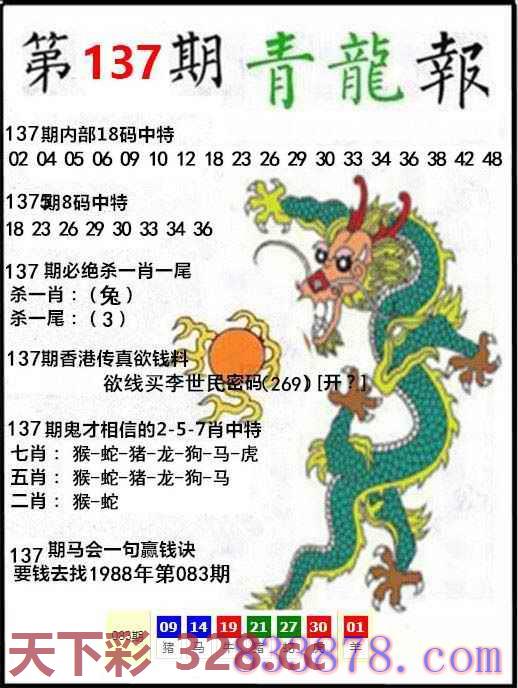 第137期青龍報
137期内部18码中特
02 04 05 06 09 10 12 18 23 26 29 30 33 34 36 38 42 48
137期8码中特
18 23 26 29 30 33 34 36
137期必绝杀一肖一尾
杀一肖：(兔)
杀一尾：(3)
137期香港传真欲钱料
欲线买李世民密码(269)[开？]
137期鬼才相信的2-5-7肖中特
七肖：猴-蛇-猪-龙-狗-马-虎
五肖：猴-蛇-猪-龙-狗-马
二肖：猴-蛇
137期马会一句赢钱诀
要钱去找1988年第083期
083期 09 14 19 21 27 30 01
猪 马 牛 虎 羊
天下彩 328.cc
878.com